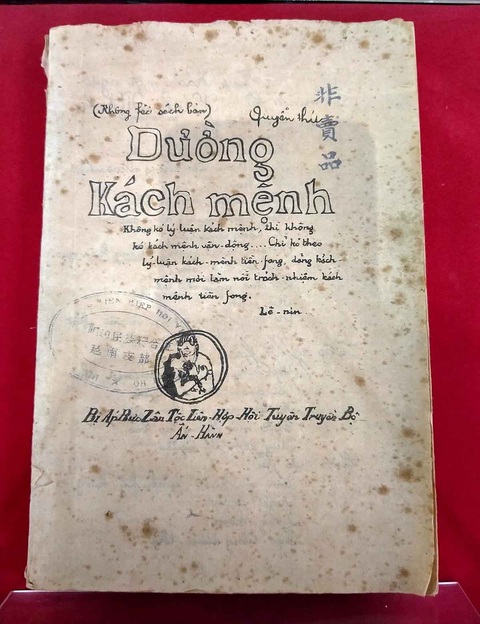 (Không fải sách bán) Quyển thứ
非賣品
Đường
Kách mệnh
Không kó lý luận kách mệnh, thì không
kó kách mệnh vận-động.... Chỉ kó theo
lý-luận kách-mệnh tiền-fong, đảng kách-
mệnh mới làm nổi trách-nhiệm kách
mệnh tiền fong.
Lê-nin
Bị Áp Bức Zân Tộc Liên-Hợp-Hội Tuyên Truyền Bộ
Ấn-Hành